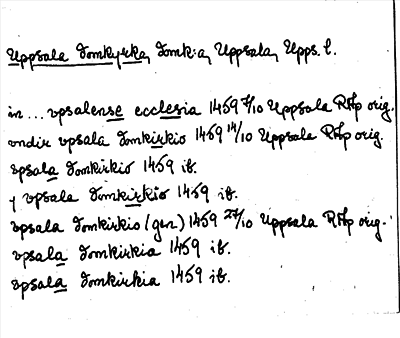 Uppsala Domkyrka, Domk:a, Uppsala, Upps. l.
in ... vpsalense ecclesia 1459 7/10 Uppsala RAp orig.
vndir vpsala domkirkio 1459 14/10 Uppsala RAp orig.
vpsala domkirkio 1459 ib.
y vpsala domkirkio 1459 ib.
vpsala domkirkio (gen.) 1459 27/10 Uppsala RAp orig.
vpsala domkirkia 1459 ib.
vpsala domkirkia 1459 ib.